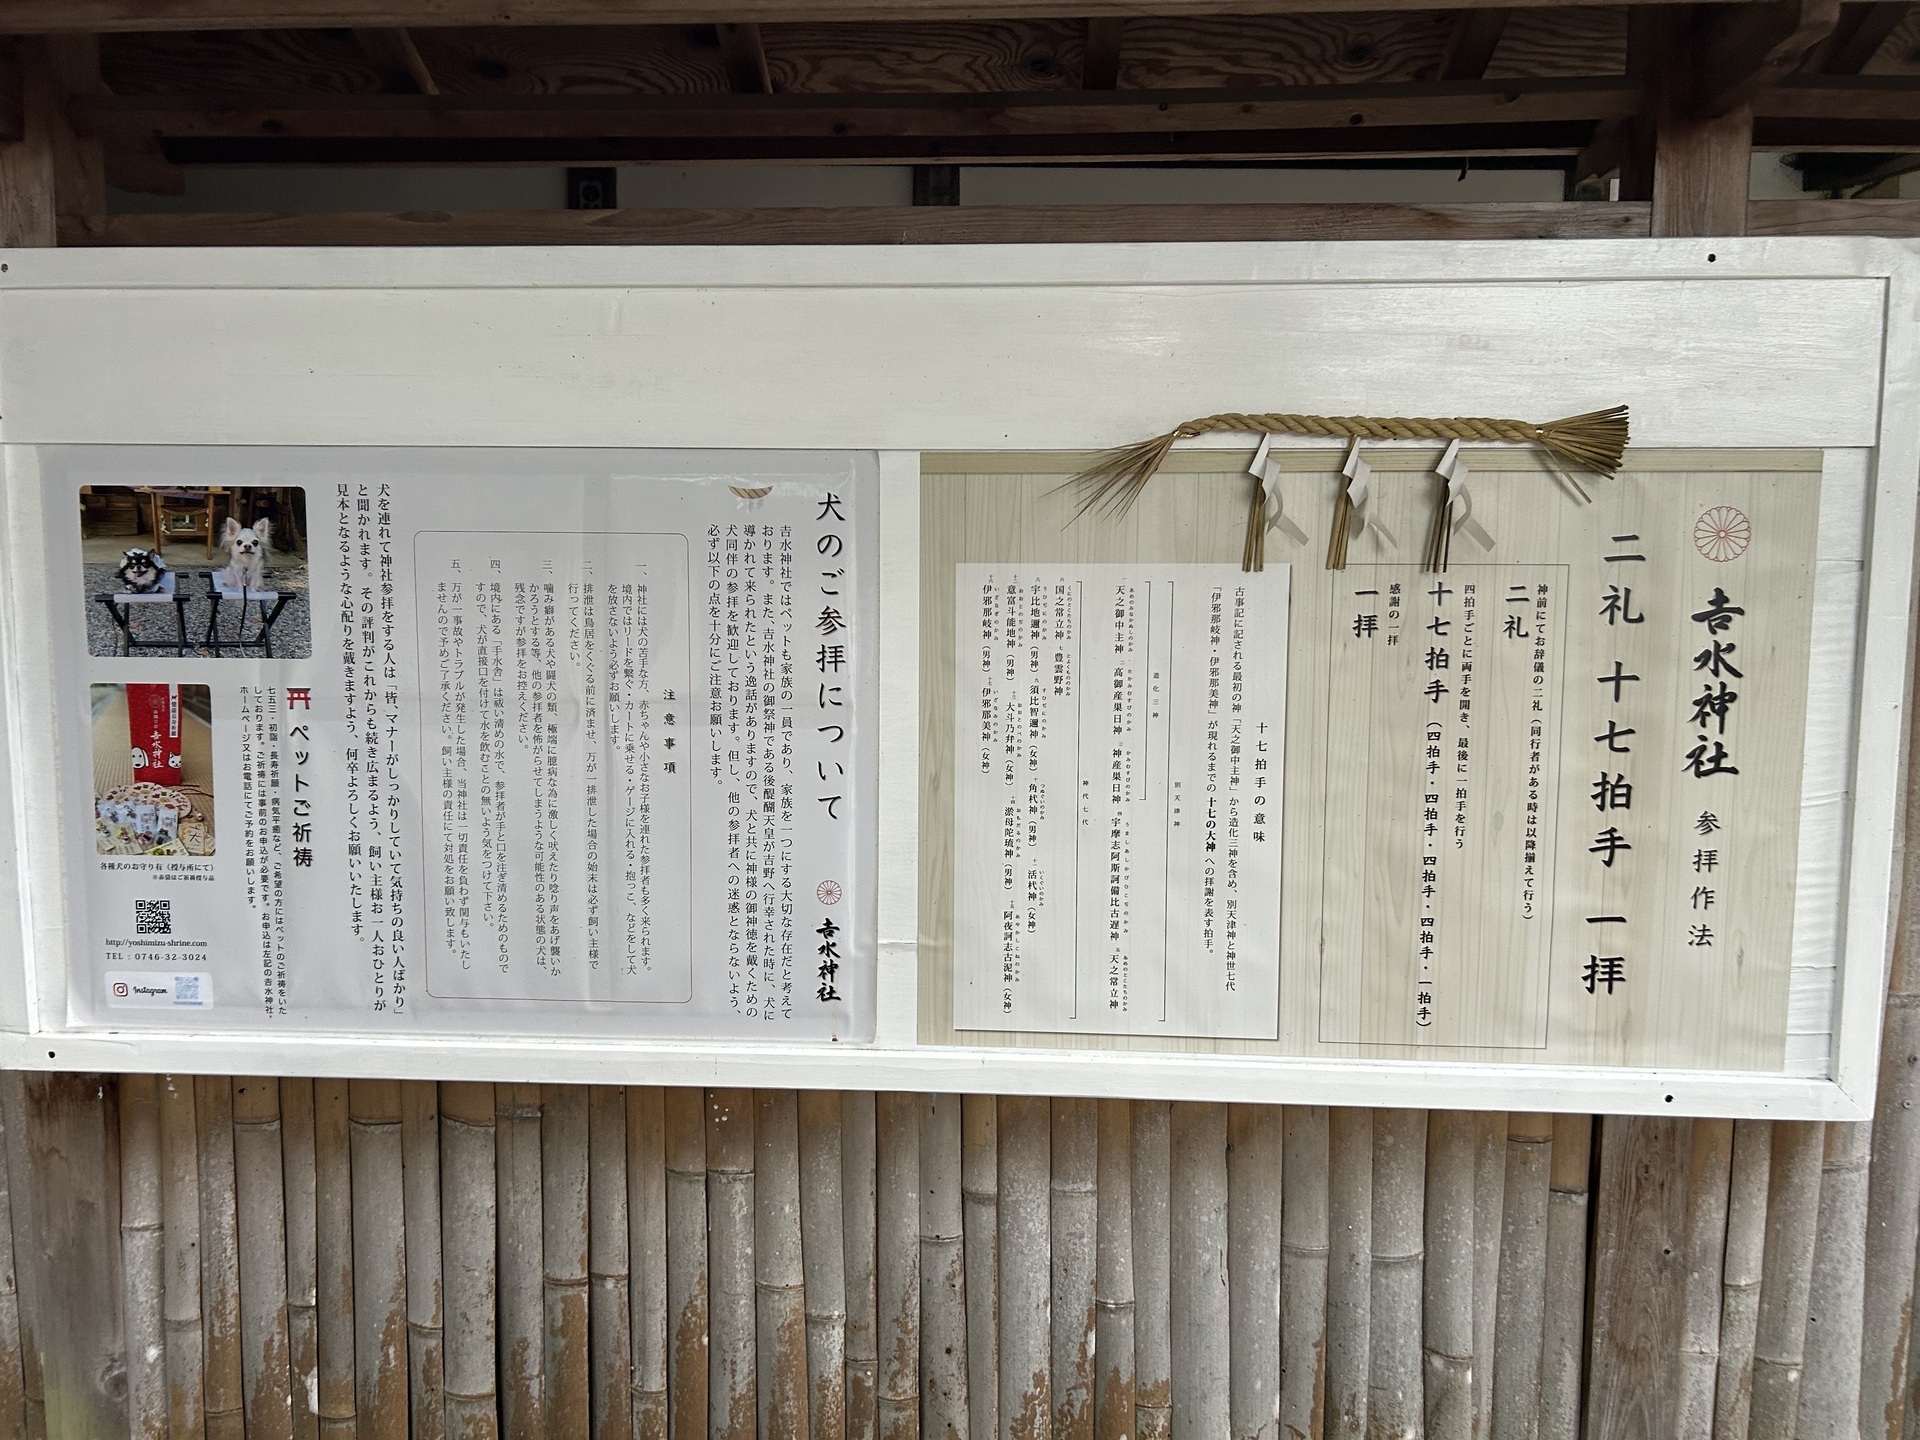 𠮷水神社 参拝作法
二礼 十七拍手 一拝
神前にてお辞儀の二礼（同行者がある時は以降揃えて行う）
二礼
四拍手ごとに両手を開き、最後に一拍手を行う
十七拍手（四拍手・四拍手・四拍手・四拍手・一拍手）
感謝の一拝
一拝
十七拍手の意味
古事記に記される最初の神「天之御中主神」から造化三神を含め、別天津神と神世七代
「伊邪那岐神・伊邪那美神」が現れるまでの十七の大神への拝謝を表す拍手。
別天津神
造化三神
一 天之御中主神 二 高御産巣日神 三 神産巣日神 四 宇摩志阿斯訶備比古遅神 五 天之常立神
神代七代
六 国之常立神 七 豊雲野神
八 宇比地邇神（男神） 九 須比智邇神（女神） 十 角杙神（男神） 十一 活杙神（女神）
十二 意富斗能地神（男神） 十三 大斗乃弁神（女神） 十四 淤母陀琉神（男神） 十五 阿夜訶志古泥神（女神）
十六 伊邪那岐神（男神） 十七 伊邪那美神（女神）
犬のご参拝について
𠮷水神社
𠮷水神社ではペットも家族の一員であり、家族を一つにする大切な存在だと考えて
おります。また、𠮷水神社の御祭神である後醍醐天皇が吉野へ行幸された時に、犬に
導かれて来られたという逸話がありますので、犬と共に神様の御神徳を戴くための
犬同伴の参拝を歓迎しております。但し、他の参拝者への迷惑とならないよう、
必ず以下の点を十分にご注意お願いします。
注意事項
一、神社には犬の苦手な方、赤ちゃんや小さなお子様を連れた参拝者も多く来られます。
境内ではリードを繋ぐ・カートに乗せる・ゲージに入れる・抱っこ、などをして犬
を放さないよう必ずお願いします。
二、排泄は鳥居をくぐる前に済ませ、万が一排泄した場合の始末は必ず飼い主様で
行ってください。
三、噛み癖がある犬や闘犬の類、極端に臆病な為に激しく吠えたり唸り声をあげ襲いか
かろうとする等、他の参拝者を怖がらせてしまうような可能性のある状態の犬は、
残念ですが参拝をお控えください。
四、境内にある「手水舎」は祓い清めの水で、参拝者が手と口を注ぎ清めるためのもので
すので、犬が直接口を付けて水を飲むことの無いよう気をつけて下さい。
五、万が一事故やトラブルが発生した場合、当神社は一切責任を負わず関与もいたし
ませんので予めご了承ください。飼い主様の責任にて対処をお願い致します。
犬を連れて神社参拝をする人は「皆、マナーがしっかりしていて気持ちの良い人ばかり」
と聞かれます。その評判がこれからも続き広まるよう、飼い主様お一人おひとりが
見本となるような心配りを戴きますよう、何卒よろしくお願いいたします。
ペットご祈祷
七五三・初詣・長寿祈願・病気平癒など、ご希望の方にはペットのご祈祷をいた
しております。ご祈祷には事前のお申込が必要です。お申込は左記の𠮷水神社、
ホームページ又はお電話にてご予約をお願いします。
𠮷水神社
各種犬のお守り有（授与所にて）
※赤袋はご祈祷授与品
http://yoshimizu-shrine.com
TEL : 0746-32-3024
Instagram